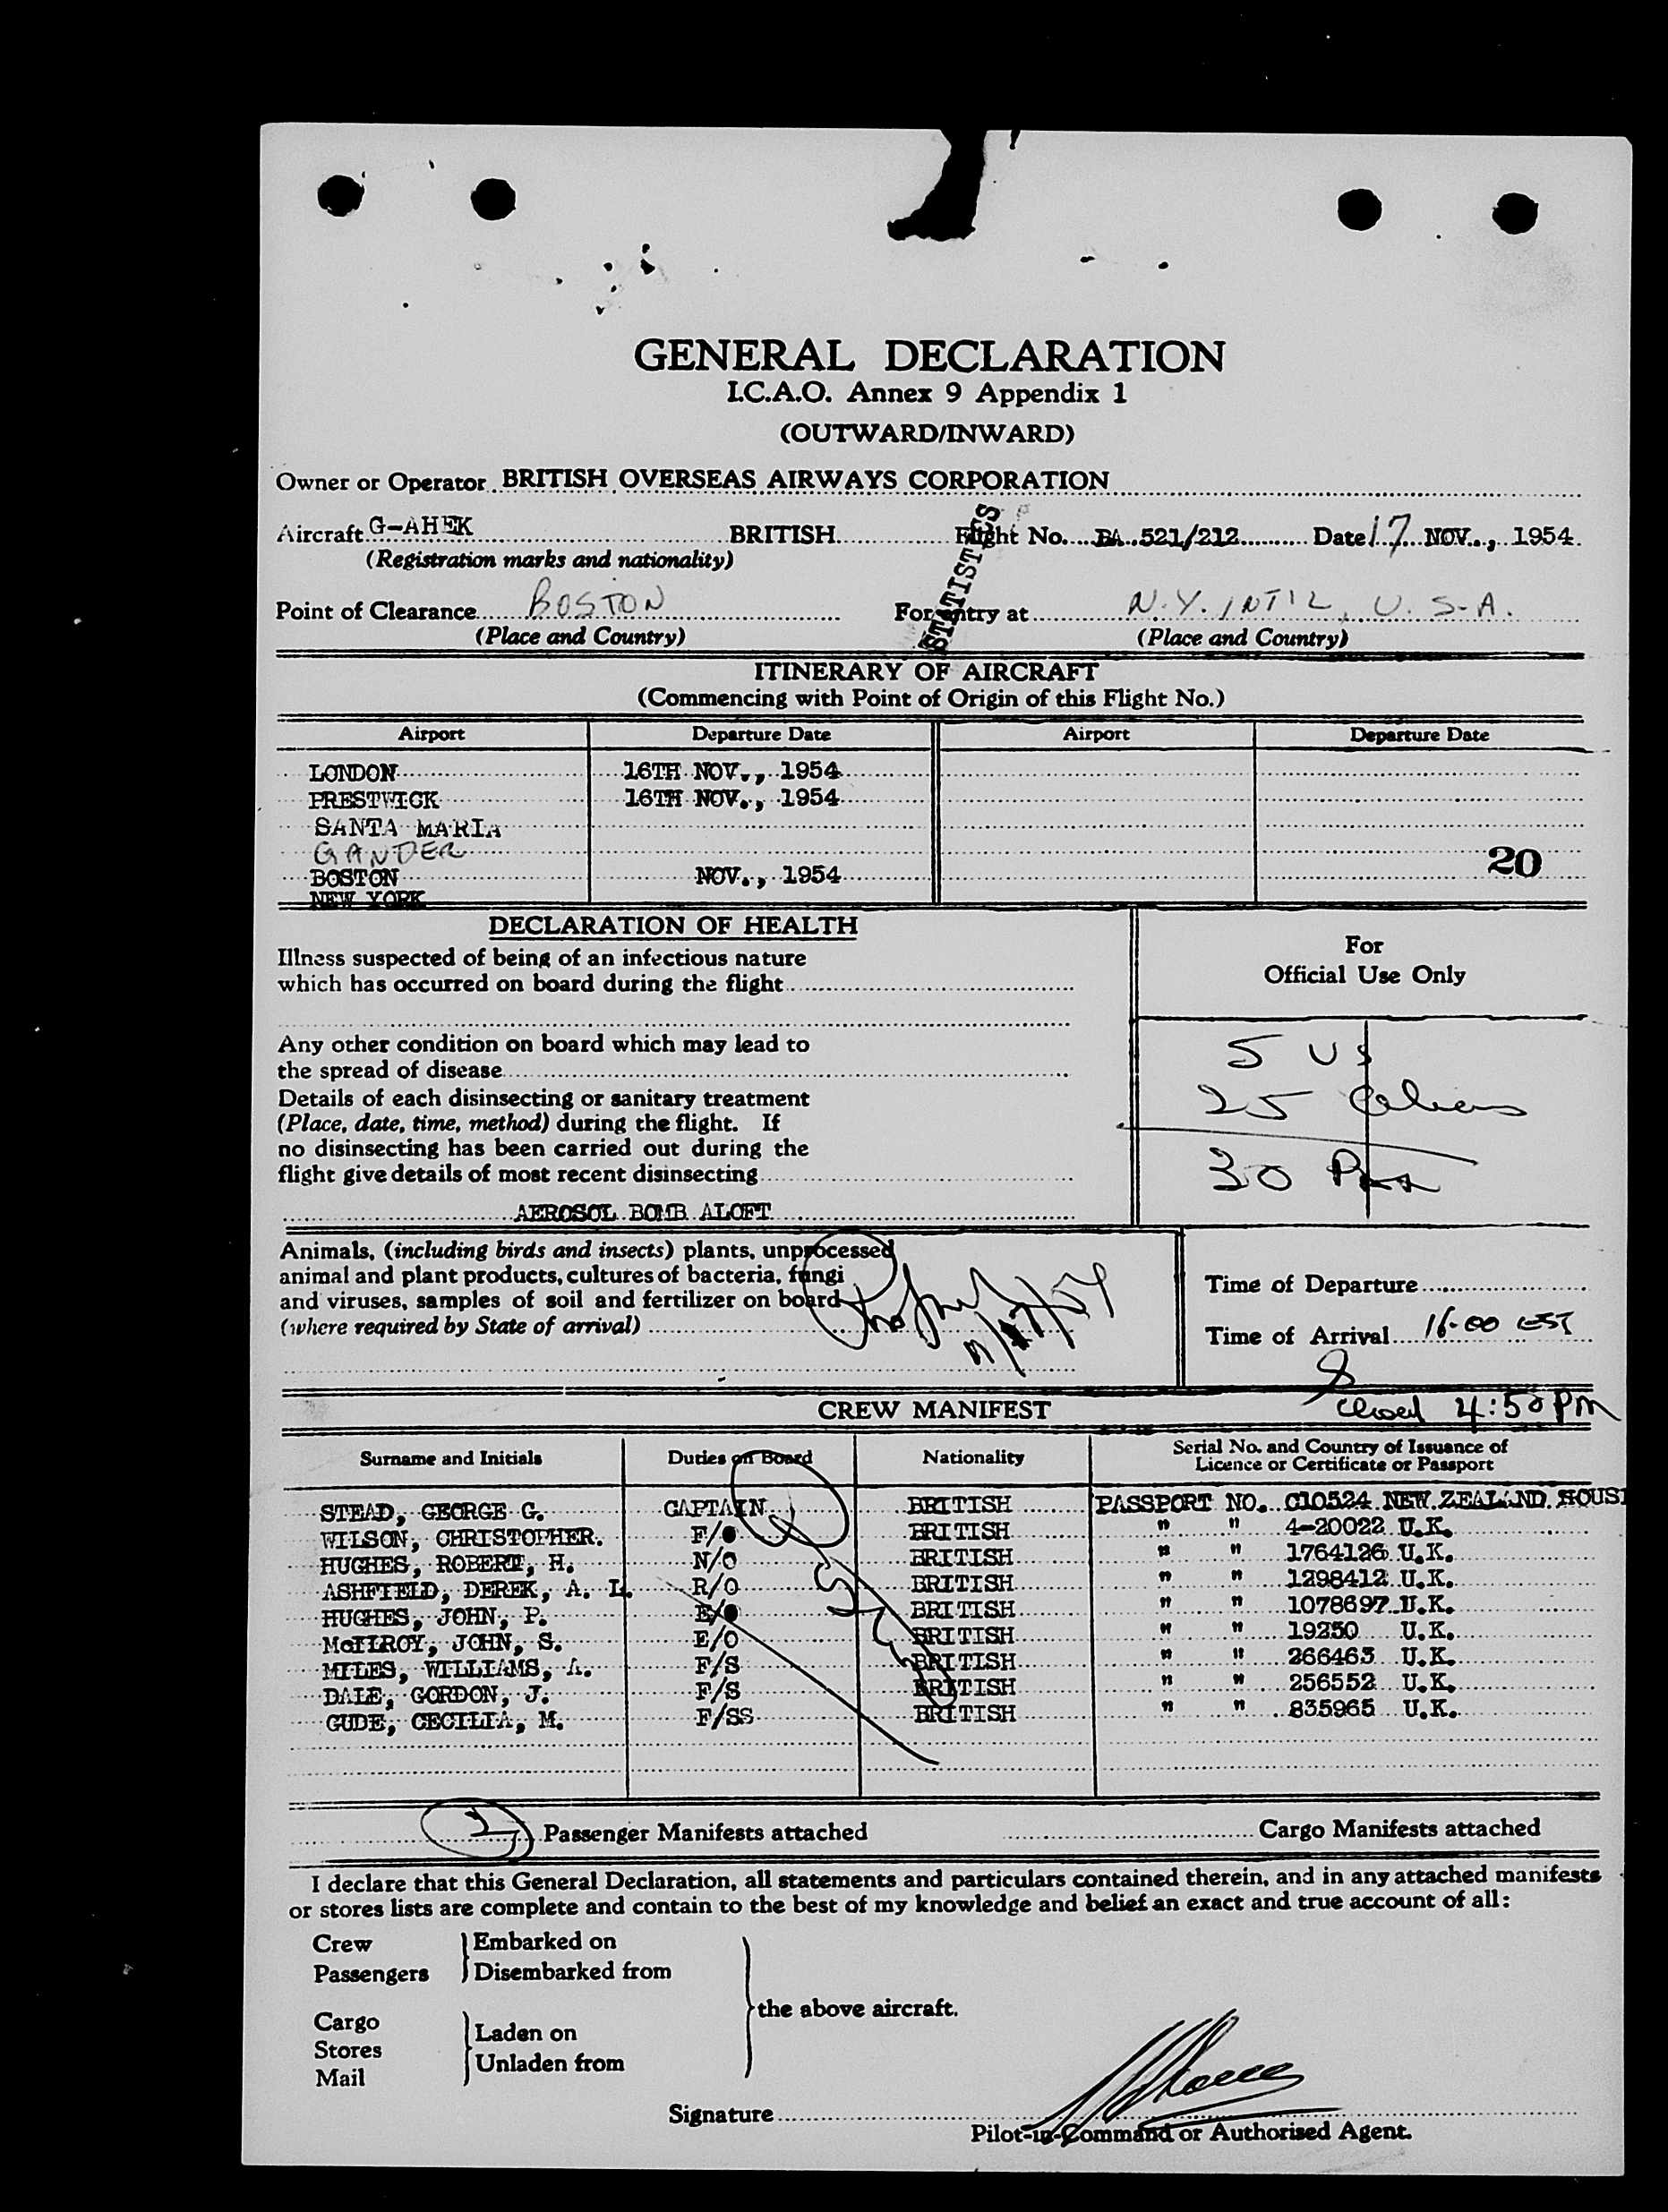 GENERAL DECLARATION
I.C.A.O. Annex 9 Appendix 1
(OUTWARD/INWARD)
Owner or Operator BRITISH OVERSEAS AIRWAYS CORPORATION
Aircraft G-AHEK BRITISH Flight No. BA 521/212 Date 17 NOV., 1954.
(Registration marks and nationality)
STATISTICS
Point of Clearance BOSTON For entry at N.Y. INT'L, U.S.A.
(Place and Country) (Place and Country)
ITINERARY OF AIRCRAFT
(Commencing with Point of Origin of this Flight No.)
Airport Departure Date Airport Departure Date
LONDON 16TH NOV., 1954
PRESTWICK 16TH NOV., 1954
SANTA MARIA
GANDER
BOSTON NOV., 1954 20
NEW YORK
DECLARATION OF HEALTH
Illness suspected of being of an infectious nature
which has occurred on board during the flight
Any other condition on board which may lead to
the spread of disease
Details of each disinsecting or sanitary treatment
(Place, date, time, method) during the flight. If
no disinsecting has been carried out during the
flight give details of most recent disinsecting
AEROSOL BOMB ALOFT
For
Official Use Only
5 US
25 Aliens
30 Pax
Animals, (including birds and insects) plants, unprocessed
animal and plant products, cultures of bacteria, fungi
and viruses, samples of soil and fertilizer on board
(where required by State of arrival)
Time of Departure
Time of Arrival 16-00 EST
closed 4:50 PM
CREW MANIFEST
Surname and Initials Duties on Board Nationality Serial No. and Country of Issuance of
Licence or Certificate or Passport
STEAD, GEORGE G. CAPTAIN BRITISH PASSPORT NO. C10524 NEW ZEALAND HOUS
WILSON, CHRISTOPHER. F/O BRITISH " " 4-20022 U.K.
HUGHES, ROBERT, H. N/O BRITISH " " 1764126 U.K.
ASHFIELD, DEREK, A. L. R/O BRITISH " " 1298412 U.K.
HUGHES, JOHN, P. E/O BRITISH " " 1078697 U.K.
McILROY, JOHN, S. E/O BRITISH " " 19250 U.K.
MILES, WILLIAMS, A. F/S BRITISH " " 266463 U.K.
DALE, GORDON, J. F/S BRITISH " " 256552 U.K.
GUDE, CECILIA, M. F/SS BRITISH " " 835965 U.K.
Passenger Manifests attached Cargo Manifests attached
I declare that this General Declaration, all statements and particulars contained therein, and in any attached manifests
or stores lists are complete and contain to the best of my knowledge and belief an exact and true account of all:
Crew Embarked on
Passengers Disembarked from
the above aircraft.
Cargo Laden on
Stores
Mail Unladen from
Signature
Pilot-in-Command or Authorised Agent.